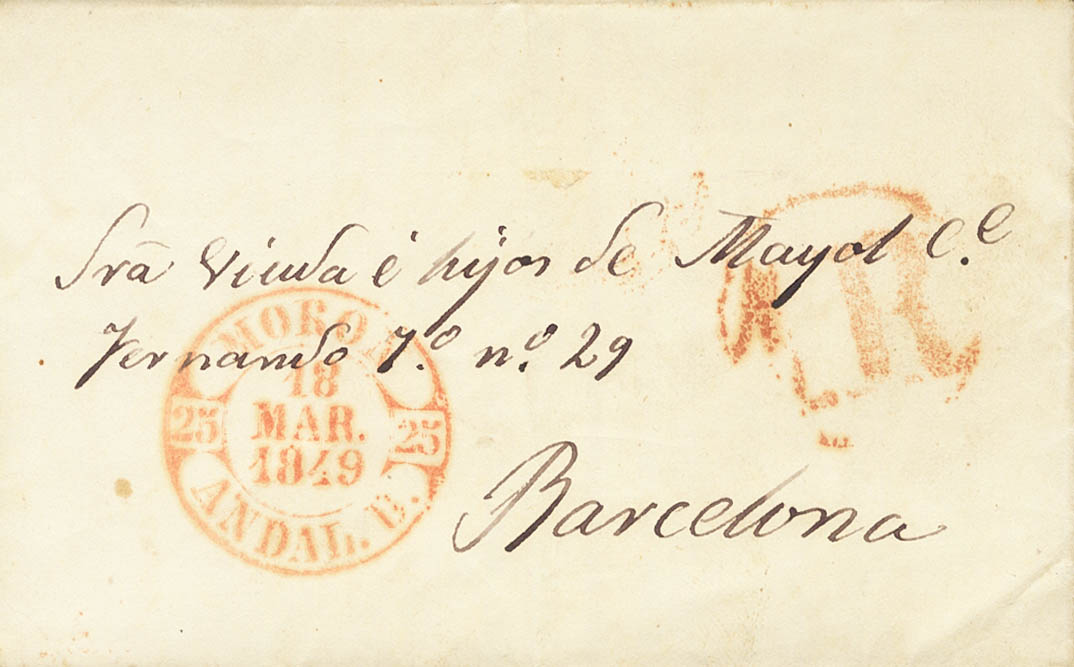 Srã Viuda é hijos de Mayol C.e
Fernando 7.º n.º 29
Barcelona
MORON
18
MAR.
1849
25 25
ANDAL. B.
R